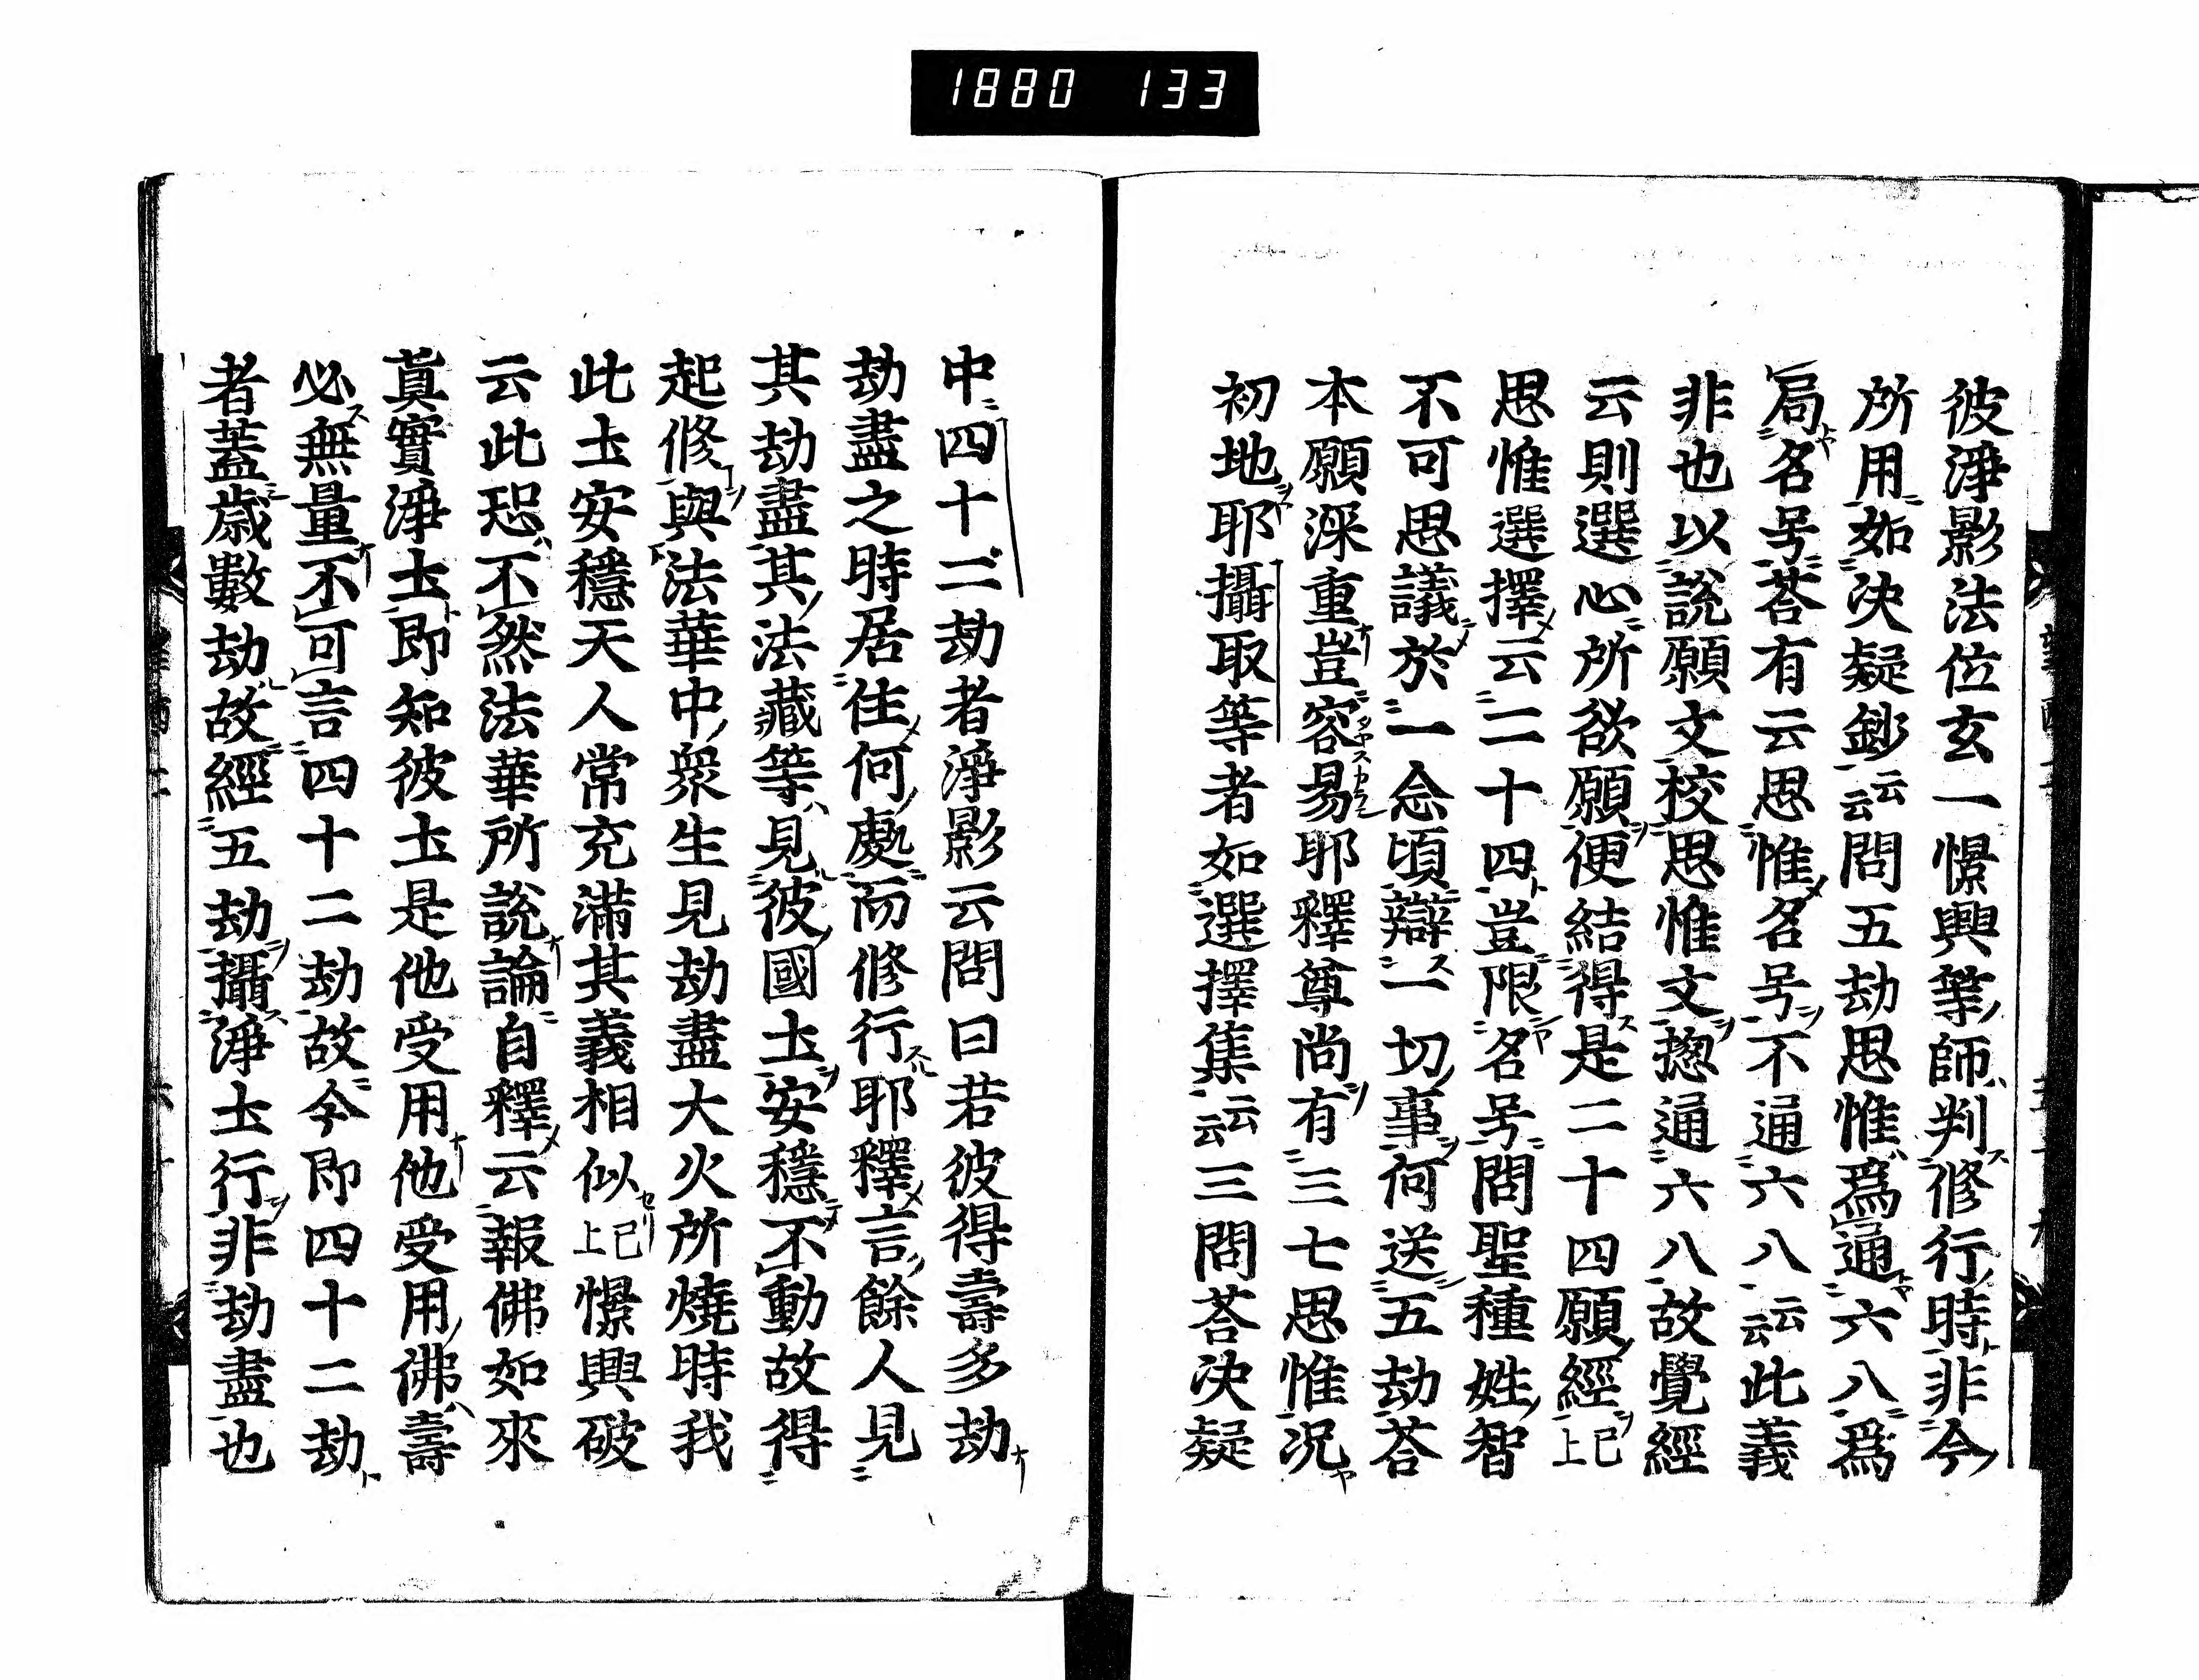 1880 133
彼淨影法位玄一憬興等師判修行時非今
所用如決疑鈔云云問五劫思惟爲通六八爲
局名号荅有云思惟名号不通六八云云此義
非也以說願文挍思惟文揔通六八故覺經
云則選心所欲願便結得是二十四願經已上
思惟選擇云二十四豈限名号問聖種姓智
不可思議於一念頃辯一切事何送五劫荅
本願深重豈容易耶釋尊尚有三七思惟況
初地耶攝取等者如選擇集云云三問荅決疑
中四十二劫者淨影云問曰若彼得壽多劫
劫盡之時居住何處而修行耶釋言餘人見
其劫盡其法藏等見彼國土安穩不動故得
起修與法華中衆生見劫盡大火所燒時我
此土安穩天人常充滿其義相似已上憬興破
云此恐不然法華所說論自釋云報佛如來
眞實淨土即知彼土是他受用他受用佛壽
必無量不可言四十二劫故今即四十二劫
者蓋歳數劫故經五劫攝淨土行非劫盡也